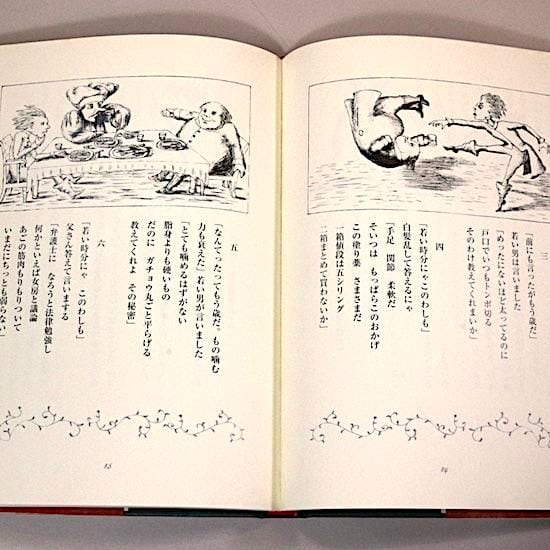 三
「前にも言ったがもう歳だ」
若い男は言いました
「めったにないほど太ってるのに
戸口でいつもトンボ切る
そのわけ教えてくれまいか」
四
「若い時分にゃこのわしも」
白髪乱して答えるにゃ
「手足 関節 柔軟だ
そいつは もっぱらこのおかげ
この塗り薬 さまさまだ
一箱値段は五シリング
二箱まとめて買わないか」
14
五
「なんてったってもう歳だ。もの噛む
力も衰えた」若い男が言いました
「とても噛めるはずがない
脂身よりも硬いもの
だのに ガチョウ丸ごと平らげる
教えてくれよ その秘密」
六
「若い時分にゃ このわしも」
父さん答えて言いまする
「弁護士に なろうと法律勉強し
何かといえば女房と議論
あごの筋肉もりもりついて
いまだにちっとも弱らない」
15